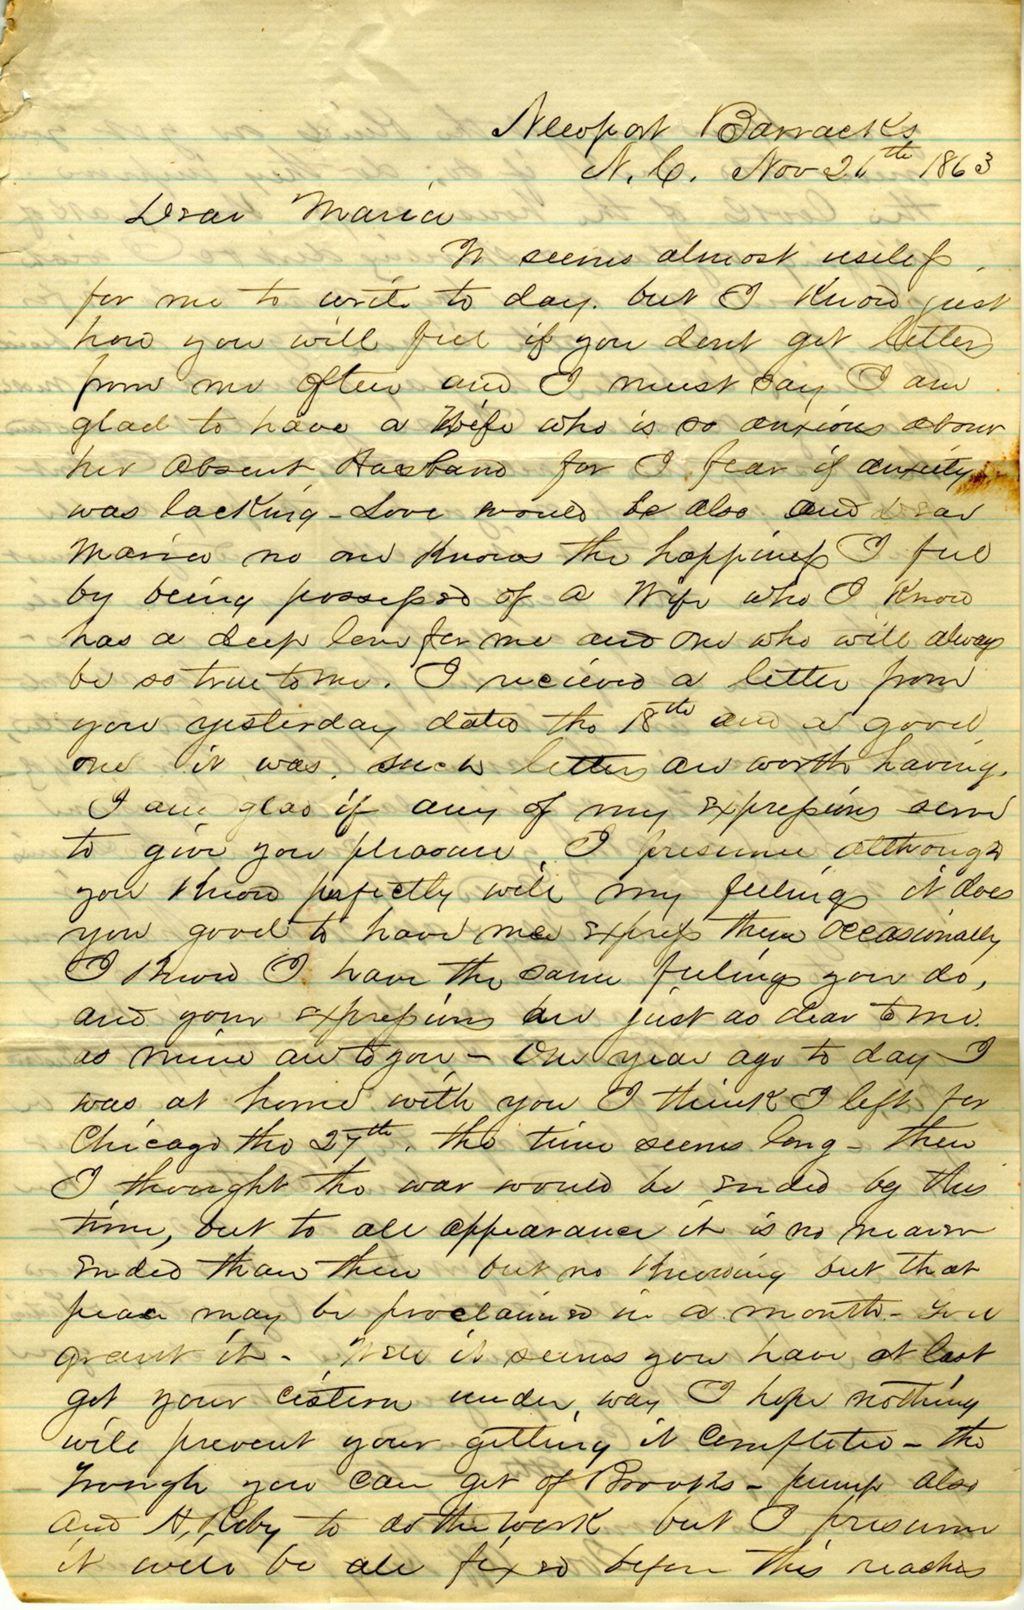 Newport Barracks
N. C. Nov 26th 1863
Dear Maria
It seems almost useless
for me to write to day. but I know just
how you will feel if you dont get letters
from me often and I must say I am
glad to have a Wife who is so anxious about
her Absent Husband for I fear if anxiety
was lacking - Love would be also and dear
Maria no one knows the happiness I feel
by being possessed of a Wife who I know
has a deep love for me and one who will always
be so true to me. I recieved a letter from
you yesterday dated the 18th and a good
one it was. such letters are worth having.
I am glad if any of my expressions serve
to give you pleasure, I presume although
you know perfectly well my feelings it does
you good to have me express them occasionally
I know I have the same feelings you do,
and your expressions are just as dear to me
as mine are to you - One year ago to day I
was at home with you I think I left for
Chicago the 27th. the time seems long - then
I thought the war would be ended by this
time, but to all appearance it is no nearer
ended than then but no knowing but that
peace may be proclaimed in a month - God
grant it - Well it seems you have at last
got your cistern under way I hope nothing
will prevent your getting it completed - the
trough you can get of - pump also
and to do the work but I presume
it will be all fixed before this reaches